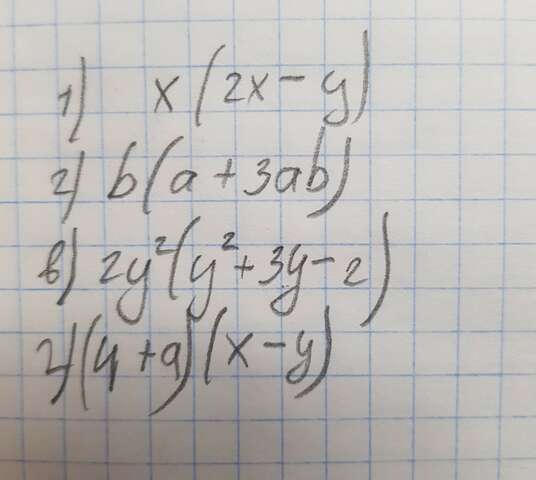 1) x(2x-y)
2) b(a+3ab)
в) 2y²(y²+3y-2)
г) (4+a)(x-y)